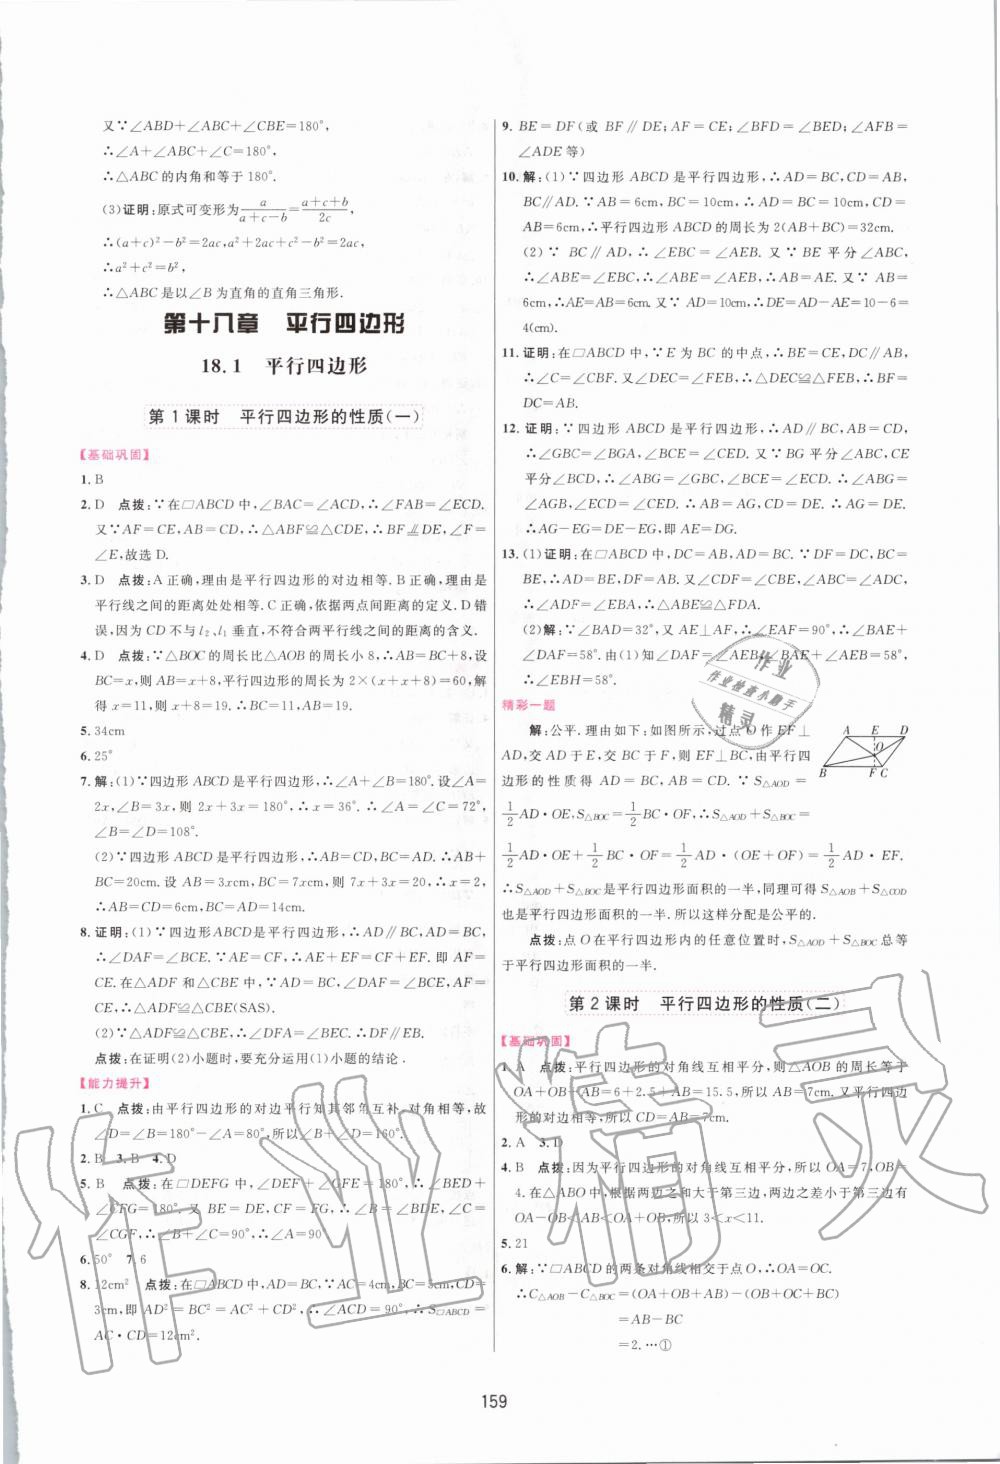 又∵∠ABD+∠ABC+∠CBE=180°,
∴∠A+∠ABC+∠C=180°,
∴△ABC的内角和等于180°.
(3)证明:原式可变形为a/(a+c-b)=(a+c+b)/2c,
∴(a+c)²-b²=2ac,a²+2ac+c²-b²=2ac,
∴a²+c²=b²,
∴△ABC是以∠B为直角的直角三角形.
第十八章 平行四边形
18.1 平行四边形
第1课时 平行四边形的性质(一)
【基础巩固】
1. B
2. D 点拨:∵在□ABCD中,∠BAC=∠ACD,∴∠FAB=∠ECD.
又∵AF=CE,AB=CD,∴△ABF≌△CDE,∴BF∥DE,∠F=
∠E,故选D.
3. D 点拨:A正确,理由是平行四边形的对边相等.B正确,理由是
平行线之间的距离处处相等.C正确,依据两点间距离的定义.D错
误,因为CD不与l₂、l₁垂直,不符合两平行线之间的距离的含义.
4. D 点拨:∵△BOC的周长比△AOB的周长小8,∴AB=BC+8,设
BC=x,则AB=x+8,∴平行四边形的周长为2×(x+x+8)=60,解
得x=11,x+8=19.∴BC=11,AB=19.
5. 34cm
6. 25°
7. 解:(1)∵四边形ABCD是平行四边形,∴∠A+∠B=180°.设∠A=
2x,∠B=3x,则2x+3x=180°,∴x=36°.∴∠A=∠C=72°,
∠B=∠D=108°.
(2)∵四边形ABCD是平行四边形,∴AB=CD,AD=BC,∴AB+
BC=20cm.设AB=3xcm,BC=7xcm,则7x+3x=20,∴x=2,
∴AB=CD=6cm,BC=AD=14cm.
8. 证明:(1)∵四边形ABCD是平行四边形,∴AD∥BC,AD=BC,
∴∠DAF=∠BCE.∵AE=CF,∴AE+EF=CF+EF.即AF=
CE.在△ADF和△CBE中,∵AD=BC,∠DAF=∠BCE,AF=
CE,∴△ADF≌△CBE(SAS).
(2)∵△ADF≌△CBE,∴∠DFA=∠BEC.∴DF∥EB.
点拨:在证明(2)小题时,要充分运用(1)小题的结论.
【能力提升】
1. C 点拨:由平行四边形的对边平行知其邻角互补,对角相等,故
∠D=∠B=180°-∠A=80°,所以∠B+∠D=160°.
2. B 3. B 4. D
5. B 点拨:在□DEFG中,∠DEF+∠EFG=180°,∴∠BED+
∠CFG=180°.又BE=DB,CF=FG,∴∠B=∠BDE,∠C=
∠CGF,∴∠B+∠C=90°,∴∠A=90°
6. 50° 7. 6
8. 12cm² 点拨:在□ABCD中,AD=BC,∵AC=4cm,BC=5cm,CD=
3cm,即AD²=BC²=AC²+CD²,∴∠ACD=90°,∴S□ABCD=
AC·CD=12cm².
9. BE=DF(或BF∥DE;AF=CE;∠BFD=∠BED;∠AFB=
∠ADE等)
10. 解:(1)∵四边形ABCD是平行四边形,∴AD=BC,CD=AB,
BC∥AD.∵AB=6cm,BC=10cm,∴AD=BC=10cm,CD=
AB=6cm,∴平行四边形ABCD的周长为2(AB+BC)=32cm.
(2)∵BC∥AD,∴∠EBC=∠AEB.又∵BE平分∠ABC,
∴∠ABE=∠EBC,∴∠ABE=∠AEB,∴AB=AE.又∵AB=
6cm,∴AE=6cm.又∵AD=10cm,∴DE=AD-AE=10-6=
4(cm).
11. 证明:在□ABCD中,∵E为BC的中点,∴BE=CE,DC∥AB,
∴∠C=∠CBF.又∵∠DEC=∠FEB,∴△DEC≌△FEB,∴BF=
DC=AB.
12. 证明:∵四边形ABCD是平行四边形,∴AD∥BC,AB=CD,
∴∠GBC=∠BGA,∠BCE=∠CED.又∵BG平分∠ABC,CE
平分∠BCD,∴∠ABG=∠GBC,∠BCE=∠ECD.∴∠ABG=
∠AGB,∠ECD=∠CED.∴AB=AG,CD=DE.∴AG=DE.
∴AG-EG=DE-EG,即AE=DG.
13. (1)证明:在□ABCD中,DC=AB,AD=BC.∵DF=DC,BC=
BE,∴DF=AB,AD=BE.又∠CDF=∠CBE,∠ABC=∠ADC,
∴∠ADF=∠EBA,∴△ABE≌△FDA.
(2)解:∵∠BAD=32°,又AE⊥AF,∴∠EAF=90°,∴∠BAE+
∠DAF=58°.由(1)知∠DAF=∠AEB,∠BAE+∠AEB=58°,
∴∠EBH=58°.
精彩一题
解:公平.理由如下:如图所示,过点O作EF⊥
AD,交AD于E,交BC于F,则EF⊥BC,由平行四
边形的性质得AD=BC,AB=CD.∵S△AOD=
1/2AD·OE,S△BOC=1/2BC·OF,∴S△AOD+S△BOC=
1/2AD·OE+1/2BC·OF=1/2AD·(OE+OF)=1/2AD·EF.
∴S△AOD+S△BOC是平行四边形面积的一半,同理可得S△AOB+S△COD
也是平行四边形面积的一半.所以这样分配是公平的.
点拨:点O在平行四边形内的任意位置时,S△AOD+S△BOC总等
于平行四边形面积的一半.
A E D
O
B F C
第2课时 平行四边形的性质(二)
【基础巩固】
1. A 点拨:平行四边形的对角线互相平分,则△AOB的周长等于
OA+OB+AB=6+2.5+AB=15.5,所以AB=7cm.又平行四边
形的对边相等,所以CD=AB=7cm.
2. A 3. D
4. B 点拨:因为平行四边形的对角线互相平分,所以OA=7,OB=
4.在△ABO中,根据两边之和大于第三边,两边之差小于第三边,
OA-OB<AB<OA+OB,所以3<x<11.
5. 21
6. 解:∵□ABCD的两条对角线相交于点O,∴OA=OC.
∴C△AOB-C△BOC=(OA+OB+AB)-(OB+OC+BC)
=AB-BC
=2.…①
159
作业
作业检查小助手
精灵
作业精灵